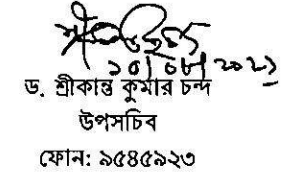 ১০/০৮/২০২১
ড. শ্রীকান্ত কুমার চন্দ
উপসচিব
ফোন: ৯৫৪৫৯২৩